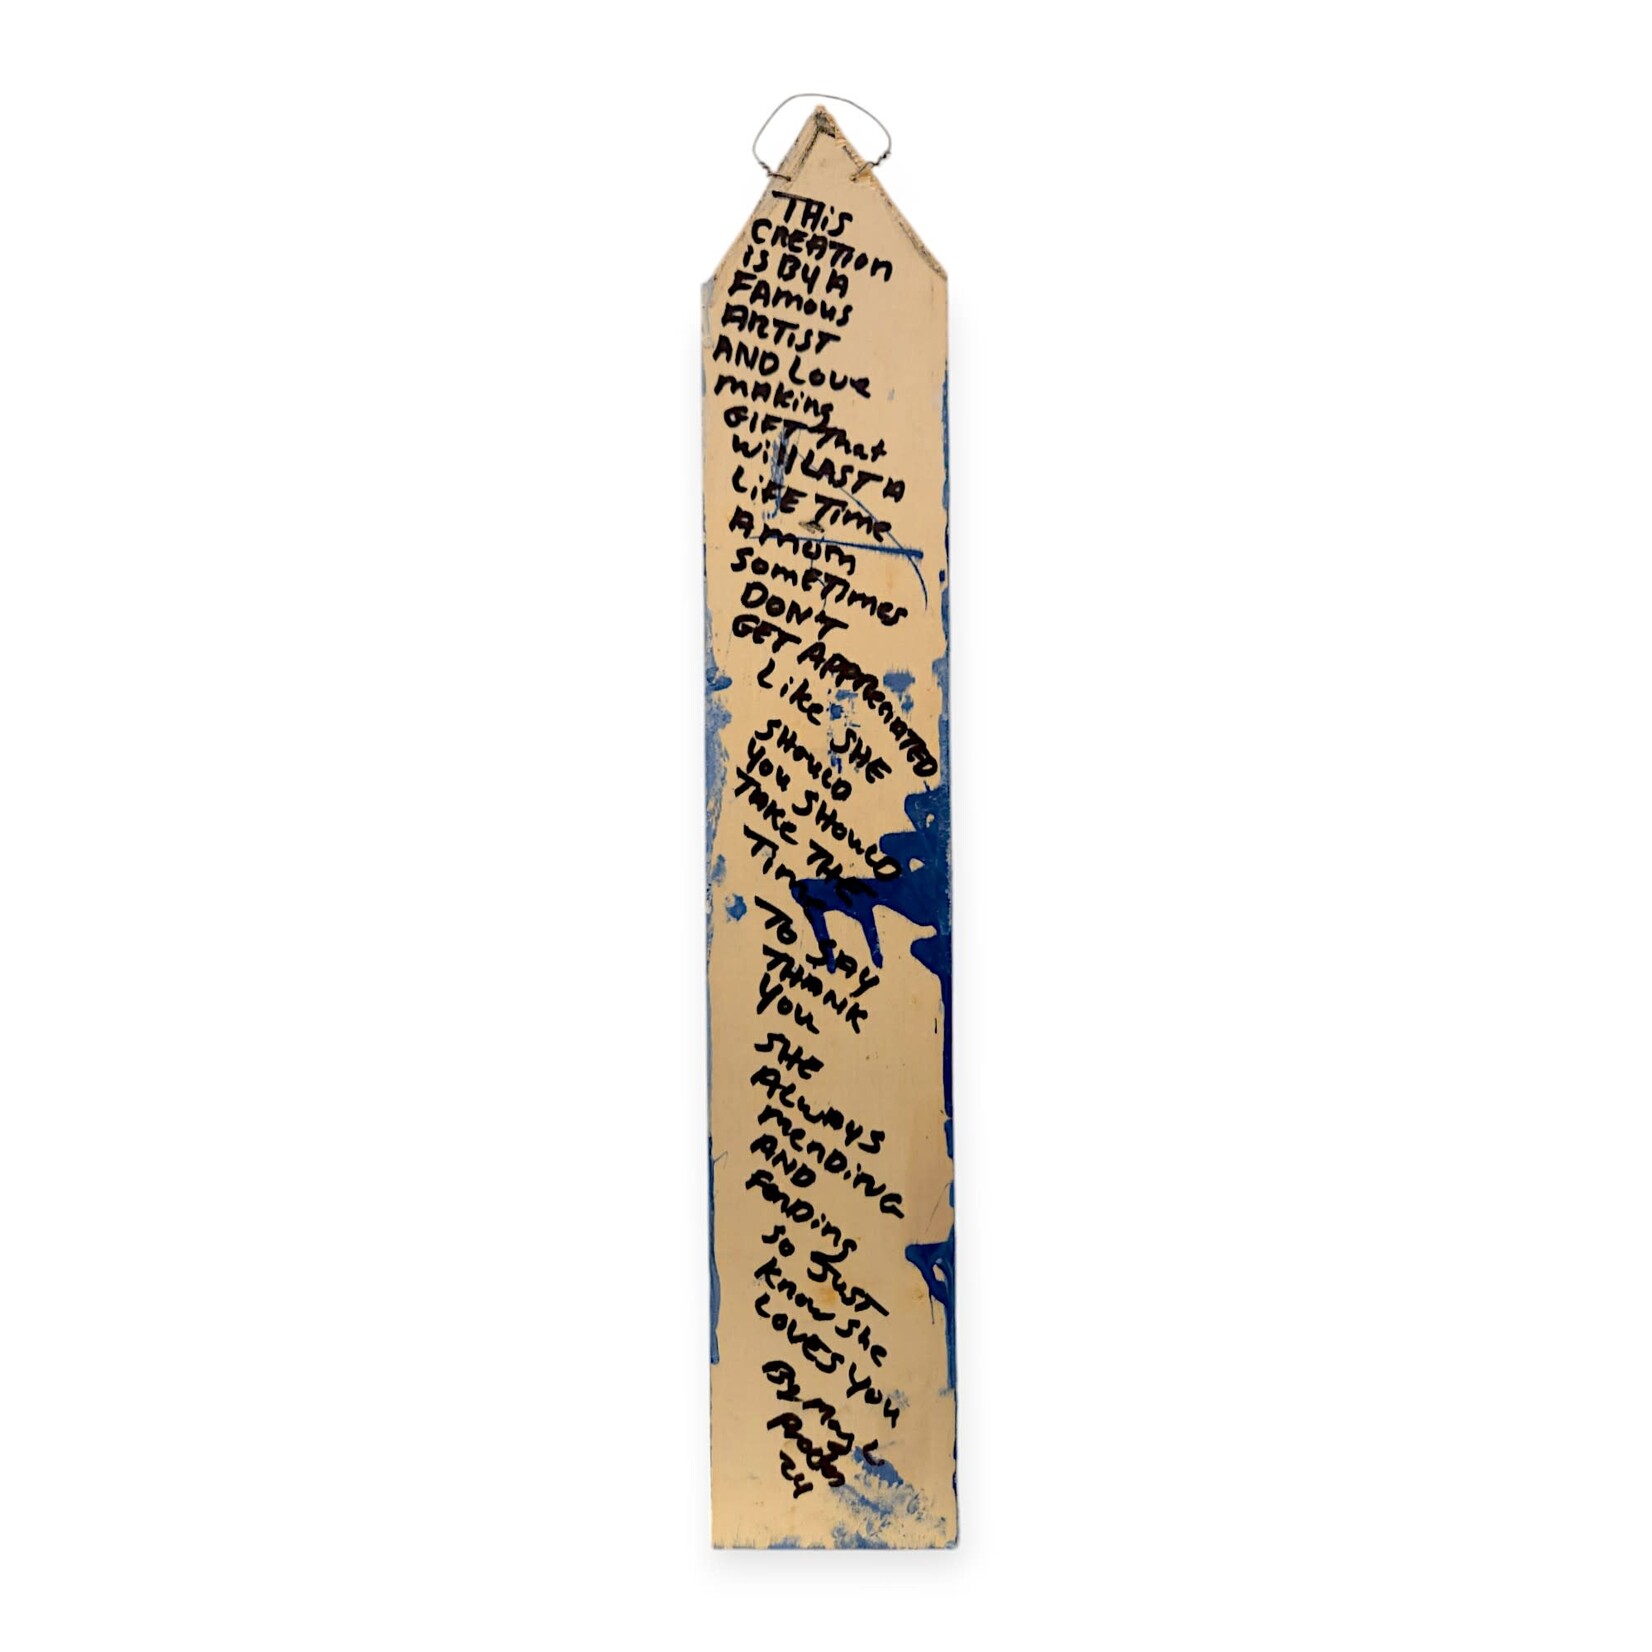 THiS
CREATion
iS BY A
FAmous
ARTiST
AND Love
mAKing
GIFT That
Will LAST A
LiFE Time
A mom
SomETimes
DON'T
GET APPReciATED
Like SHE
SHouLD
You SHouLD
TAKe THE
Time
To SAY
THANK
You
SHE
ALwAYS
menDiNG
AND
FenDing
So JusT
Know She
LOVES You
By
24